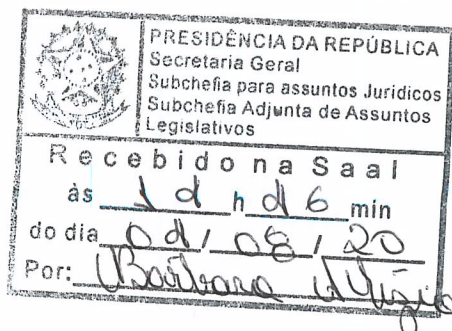 PRESIDÊNCIA DA REPÚBLICA
Secretaria Geral
Subchefia para assuntos Jurídicos
Subchefia Adjunta de Assuntos
Legislativos
Recebido na Saal
às h min
do dia / 08 / 20
Por: Bárbara